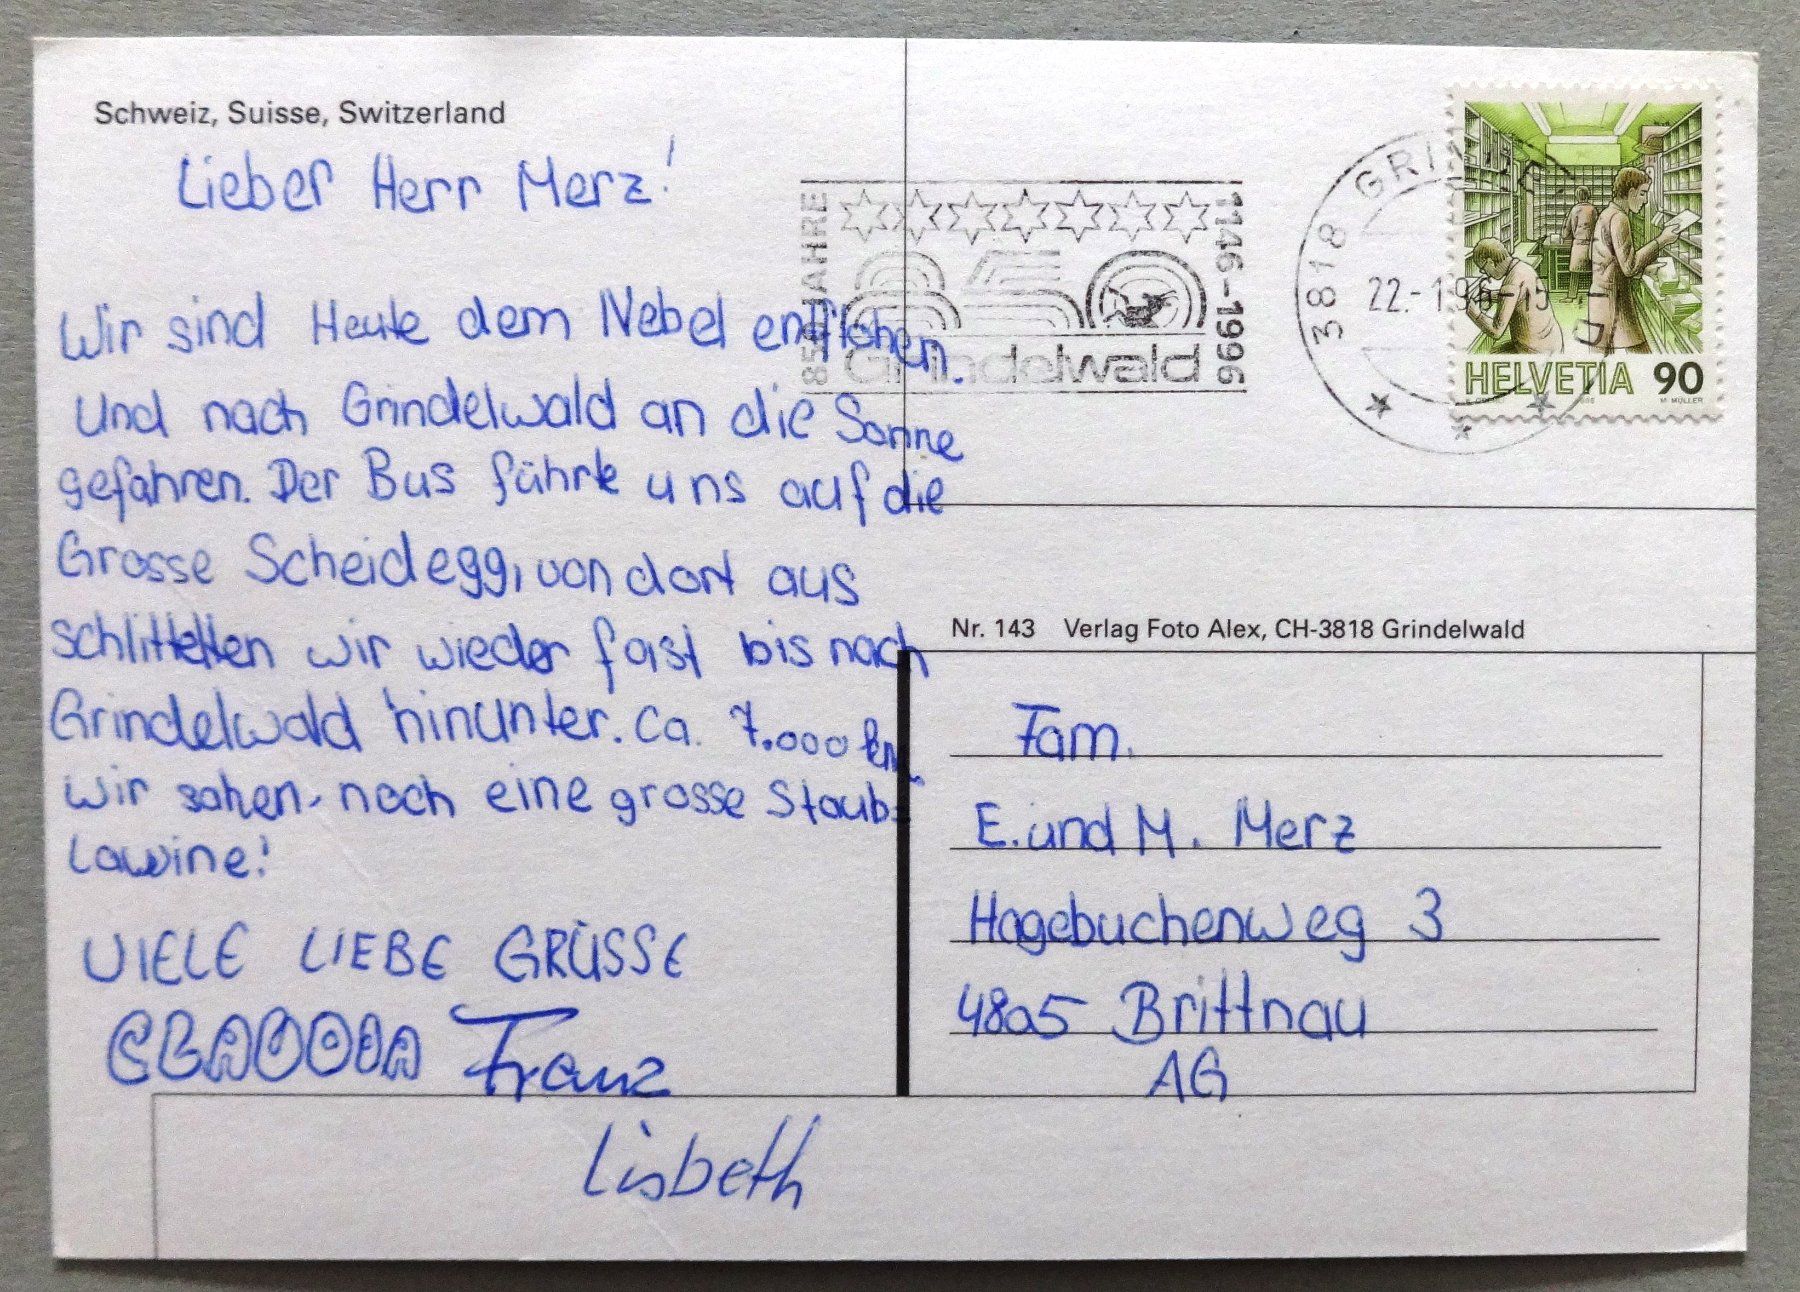 Schweiz, Suisse, Switzerland
Lieber Herr Merz!
Wir sind Heute dem Nebel entflohen.
Und nach Grindelwald an die Sonne
gefahren. Der Bus führte uns auf die
Grosse Scheidegg, von dort aus
schlittelten wir wieder fast bis nach
Grindelwald hinunter. Ca. 7.000 km.
Wir sahen noch eine grosse Staub=
Lawine!
VIELE LIEBE GRÜSSE
CLAUDIA Franz
Lisbeth
850 JAHRE
Grindelwald
1146-1996
3818 GRINDEL
22.-1.96-15
HELVETIA 90
M. MÜLLER
Nr. 143 Verlag Foto Alex, CH-3818 Grindelwald
Fam.
E. und M. Merz
Hagebuchenweg 3
4805 Brittnau
AG